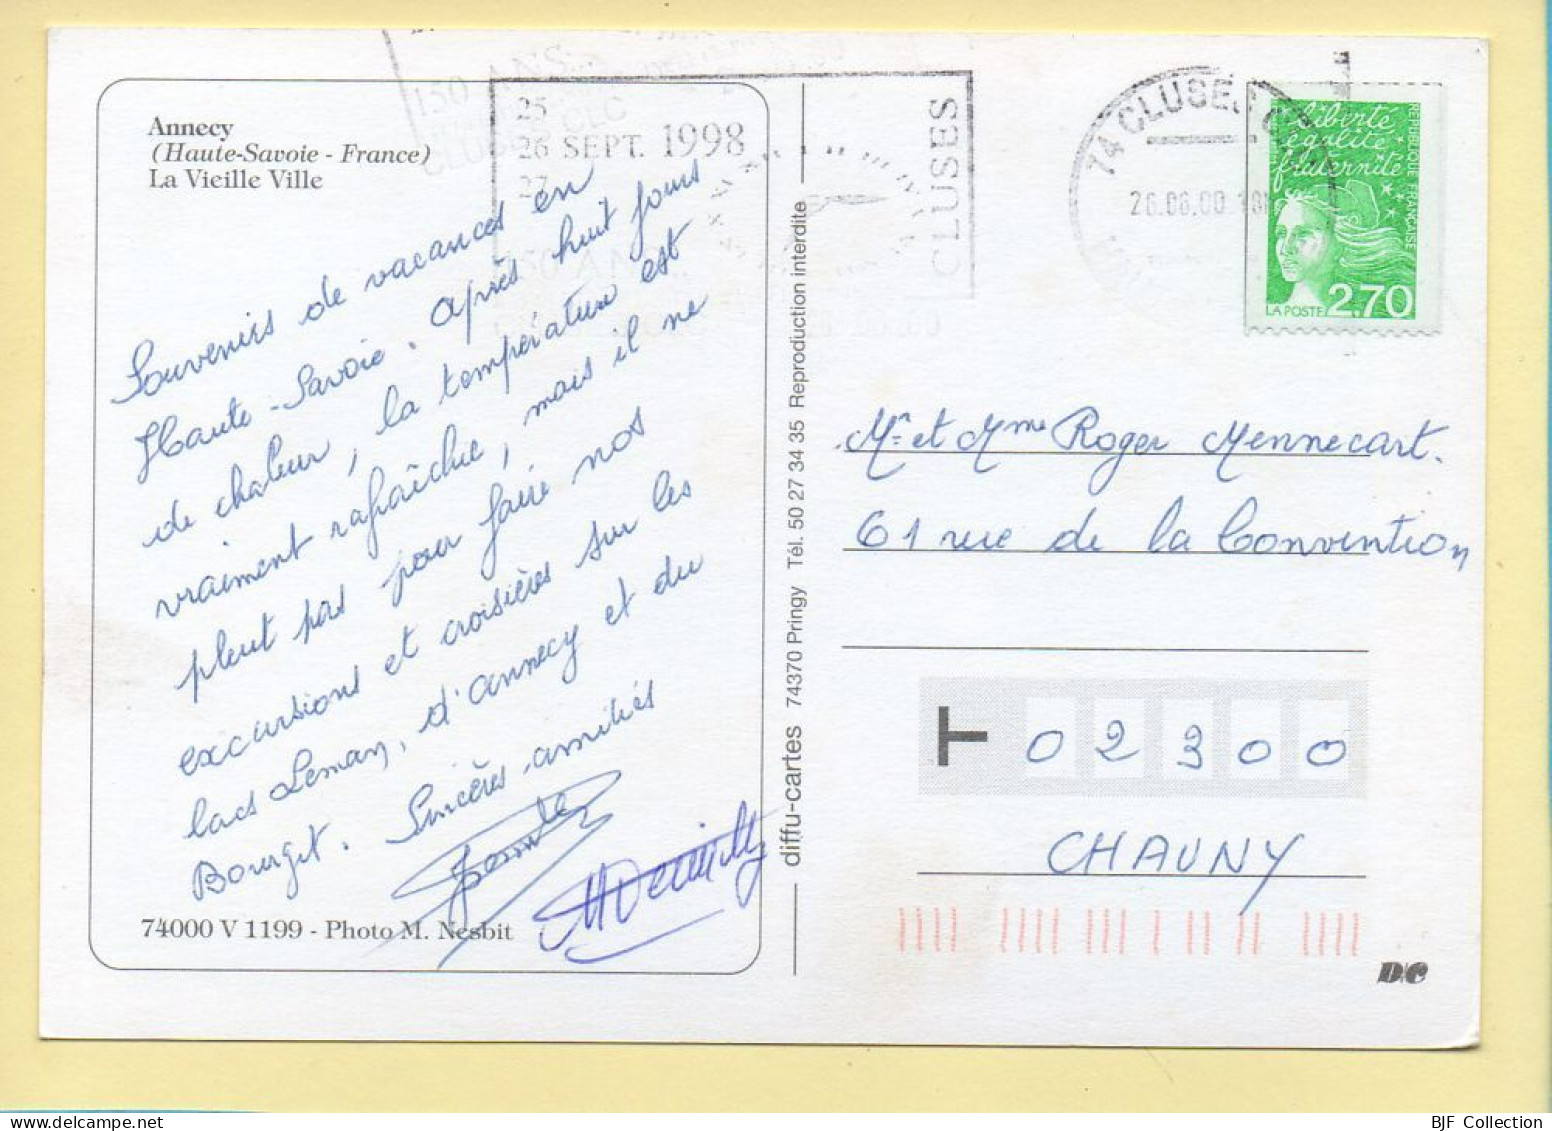 Annecy
(Haute-Savoie - France)
La Vieille Ville
Souvenirs de vacances en
Haute-Savoie. Après huit jours
de chaleur, la température est
vraiment rafraîchie, mais il ne
pleut pas pour faire nos
excursions et croisières sur les
lacs Léman, d'Annecy et du
Bourget. Sincères amitiés
74000 V 1199 - Photo M. Nesbit
diffu-cartes 74370 Pringy Tél. 50 27 34 35 Reproduction interdite
25
26 SEPT. 1998
27
150 ANS
CLUSES
74 CLUSES
26.08.00
liberté
égalité
fraternité
REPUBLIQUE FRANÇAISE
LA POSTE 2,70
Mr et Mme Roger Mennecart.
61 rue de la Convention
T 02300
CHAUNY
D/C
BJF Collection